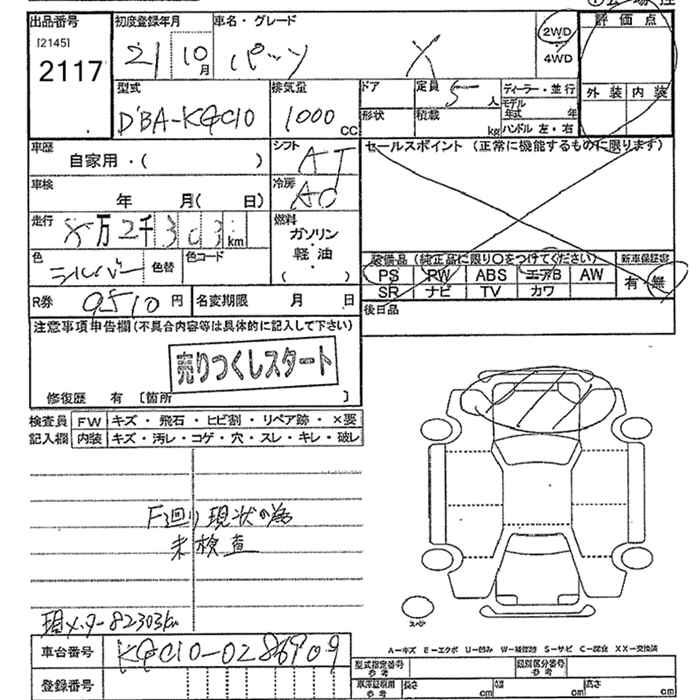 出品番号
[2145]
2117
初度登録年月
21 10月
車名・グレード
パッソ X
2WD
4WD
評価点
外装 内装
型式
DBA-KGC10
排気量
1000 CC
ドア
形状
定員 5 人
積載 kg
ディーラー・並行
モデル年式 年
ハンドル 左・右
車歴
自家用・( )
シフト
AT
セールスポイント (正常に機能するものに限ります)
車検
年 月( 日)
冷房
AC
走行
8万2千303km
燃料
ガソリン
・軽油・
( )
色
シルバー
色替
色コード
装備品 (純正品に限り○をつけてください)
新車保証書
PS PW ABS エアB AW
SR ナビ TV カワ
有・無
R券 9510円
名変期限 月 日
後日品
注意事項申告欄 (不具合内容等は具体的に記入して下さい)
売りつくしスタート
修復歴 有 [箇所 ]
検査員記入欄
FW キズ・飛石・ヒビ割・リペア跡・×要
内装 キズ・汚レ・コゲ・穴・スレ・キレ・破レ
F廻り現状の為
未検査
現メーター82303km
スペア
車台番号 KGC10-0286909
登録番号
A−キズ E−エクボ U−凹み W−補修跡 S−サビ C−腐食 XX−交換済
型式指定番号 参考
類別区分番号 参考
長さ cm
幅 cm
高さ cm